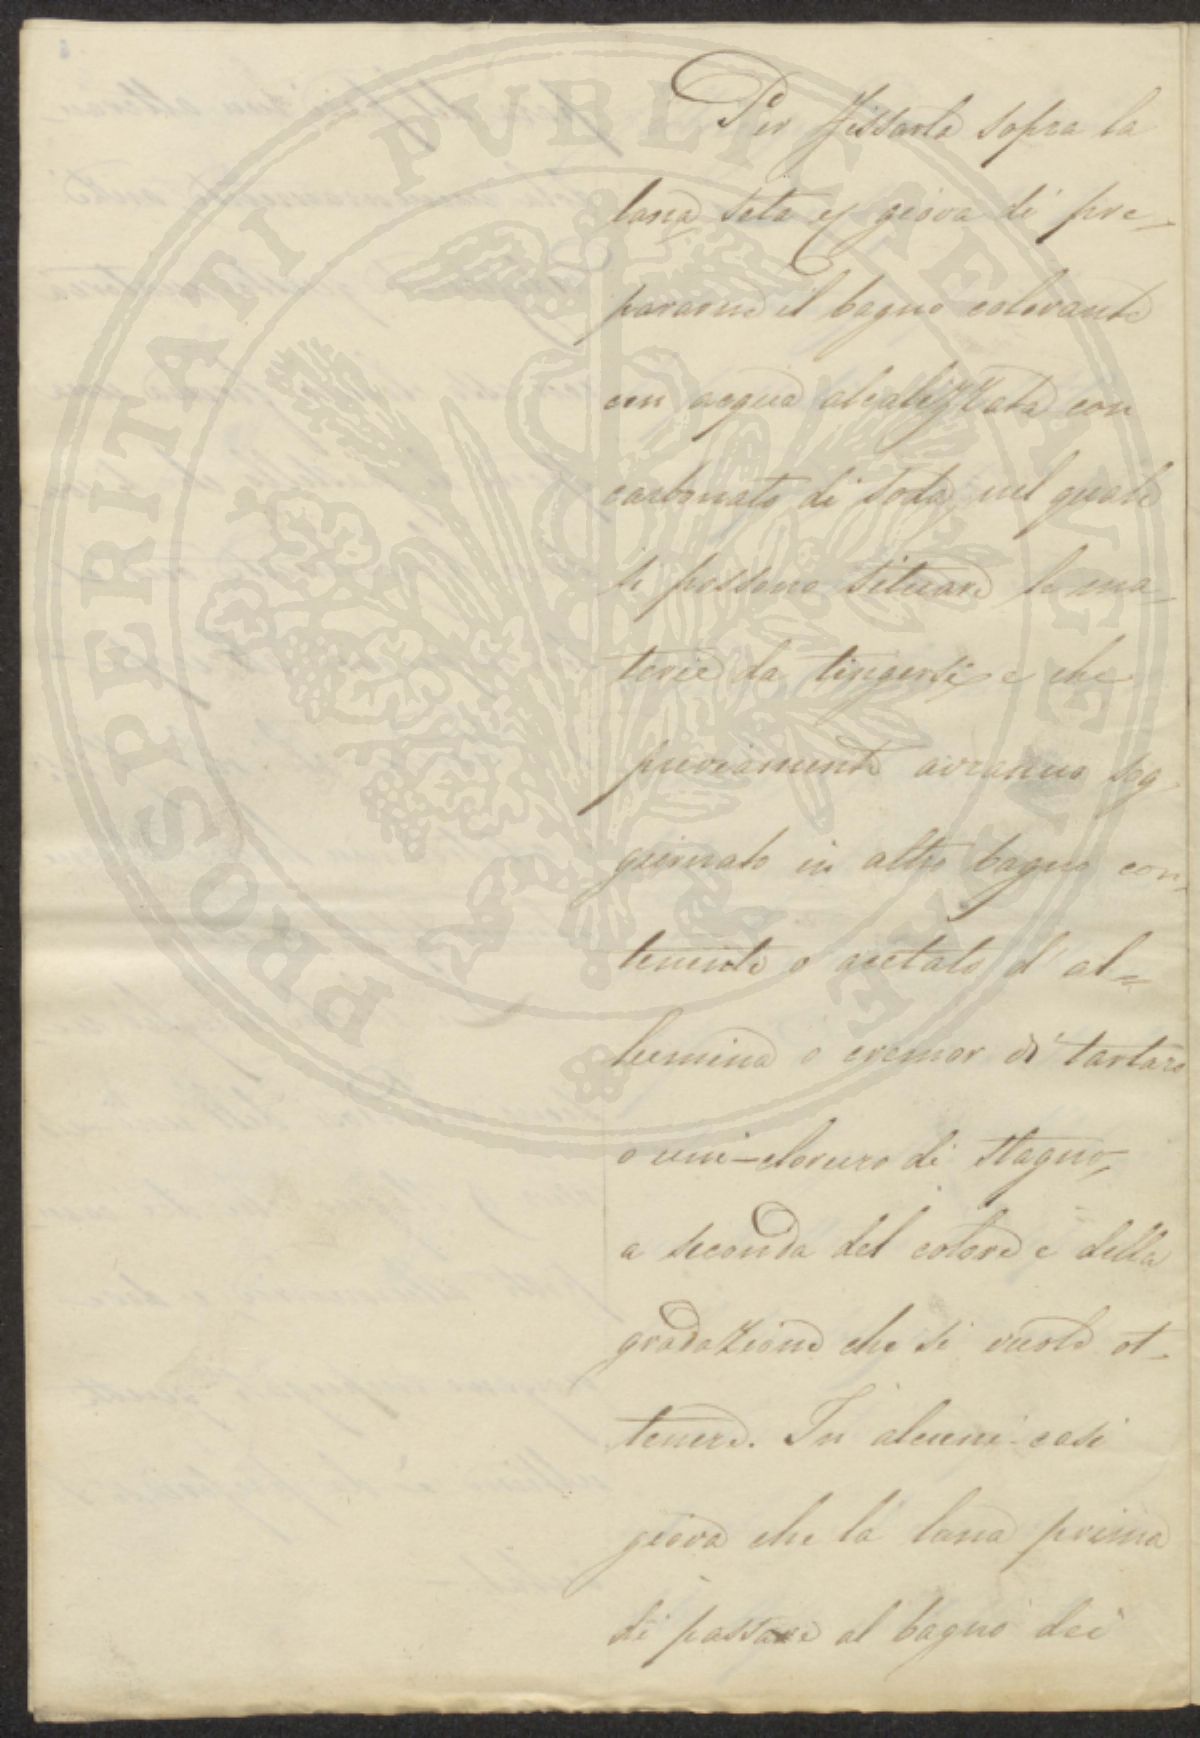 Per fissarlo sopra la
lana seta & giova di pre-
pararne il bagno colorante
con acqua alcalizzata con
carbonato di soda, nel quale
si possono situare le ma-
terie da tingersi e che
previamente avranno sog-
giornato in altro bagno con-
tenente o acetato d'al-
lumina o cremor di tartaro
o uni-cloruro di stagno,
a seconda del colore e della
gradazione che si vuole ot-
tenere. In alcuni casi
giova che la lana prima
di passare al bagno dei
PROSPERITATI PVBLICAE AVGENDAE